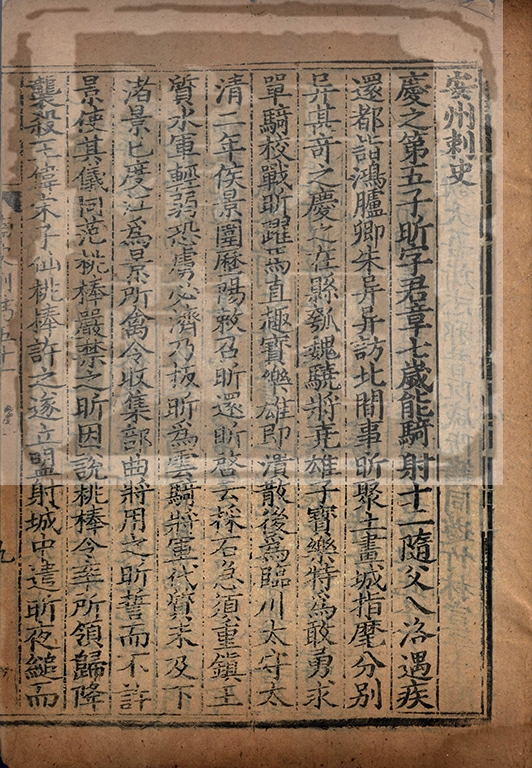 安州刺史
慶之第五子昕字君章七歲能騎射十二隨父入洛遇疾
還都詣鴻臚卿朱异异訪北間事昕聚土畫城指麾分別
异甚奇之慶之在縣瓠魏驍將尭雄子寶樂特為敢勇求
單騎校戰昕躍馬直趣寶樂雄即潰散後為臨川太守太
清二年侯景圍歷陽敕召昕還昕啓云採石急須重鎮王
質水軍輕弱恐虜必濟乃板昕為雲騎將軍代質未及下
渚景已度江為景所禽令收集部曲將用之昕誓而不許
景使其儀同范桃棒嚴禁之昕因說桃棒令率所領歸降
襲殺王偉宋子仙桃棒許之遂立盟射城中遣昕夜縋而
九